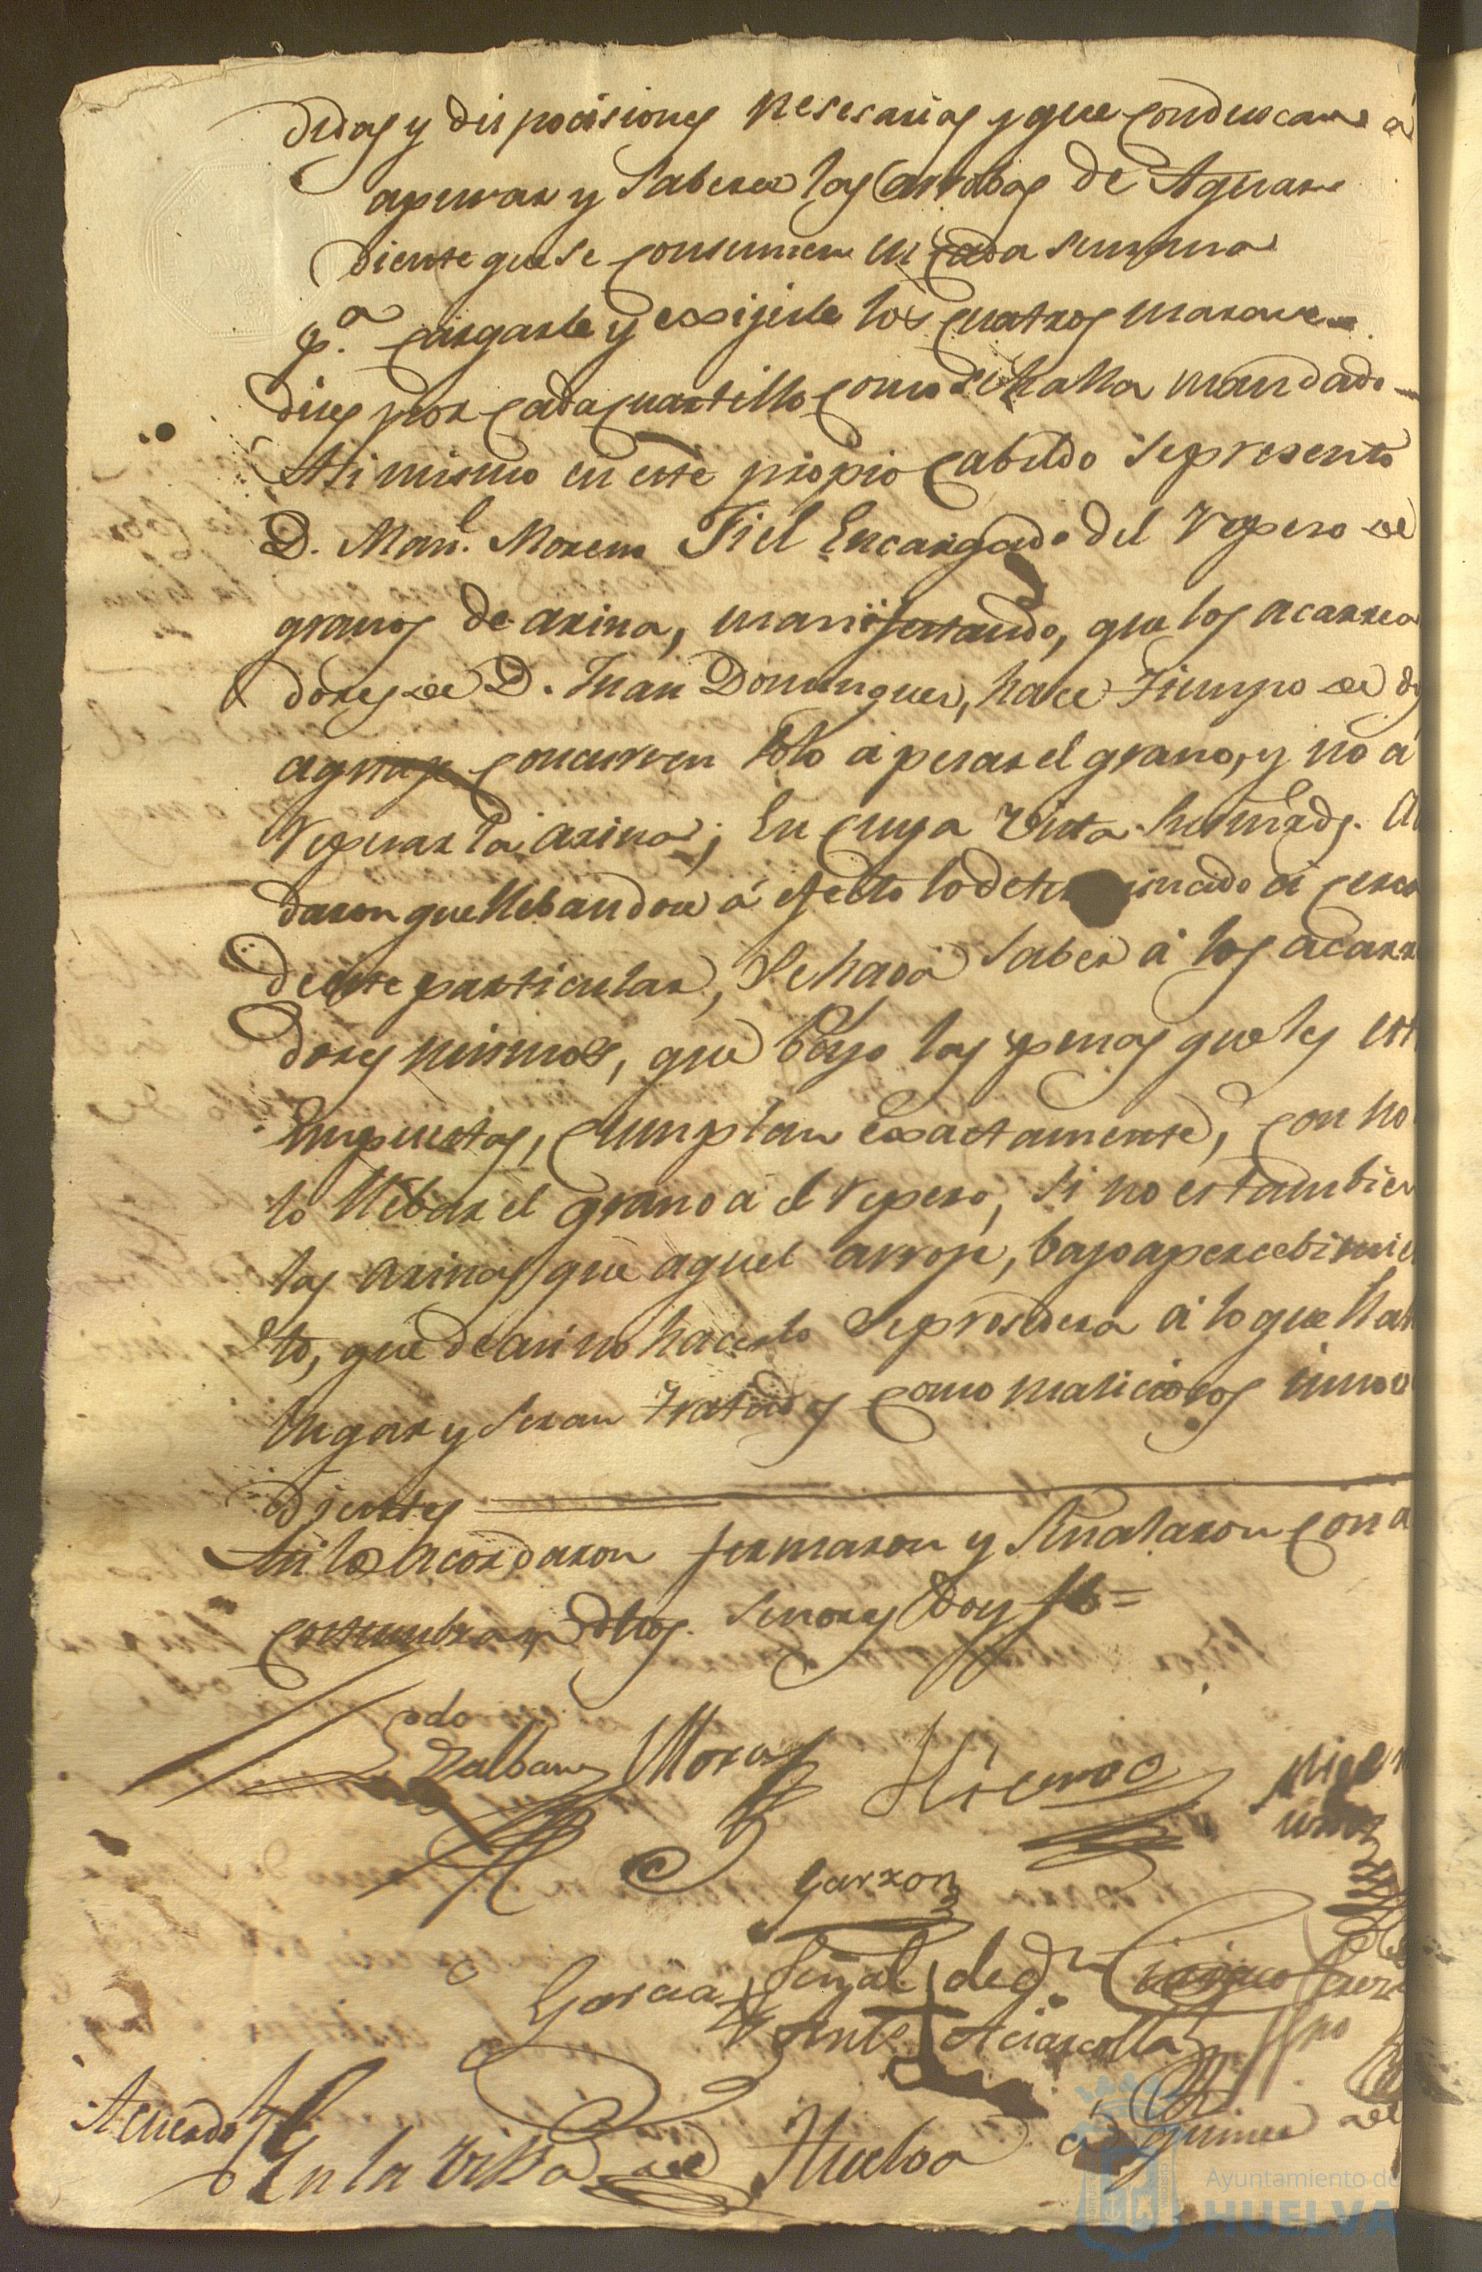 didas y disposisiones nesesarias y que conduscan a
apurar y saber a las arrobas de Aguar
diente que se consumen en cada semana
p.ª cargarle y exijirle los quatros marave
dises por cada quartillo como se halla mandado
Asi mismo en este propio cabildo se presento
D. Man.l Moreno Fiel Encargado del Repeso de
granos de arina, manifestando, que los acarrea
dores de D. Juan Dominguez, hace Tiempo de d
concurren solo a pesar el grano, y no a
repesar la arina; En cuya Vista sus mrds. A
daron que llebandose á efecto lo determinado a cerca
de este particular, se hara saber a los acarr
dores mismos, que bajo las penas que les est
Impuestas, cumplan exactamente, con no
lo llebar el grano a el repeso, si no es tambien
las arinas que aquel arroje, bajo apercebimie
to, que de asi no hacerlo se prosedera a lo que hal
lugar y seran tratados como maliciosos inno
dientes
Asi lo acordaron firmaron y señalaron con a
costumbran dhos. Señores Doy fe =
Zalban Moras Hierro
Garzon
Garcia Señal de d.n Ciriaco
Vente Aciascolla
Acuerdo
En la Villa de Huelva a quince de
Ayuntamiento de
HUELVA